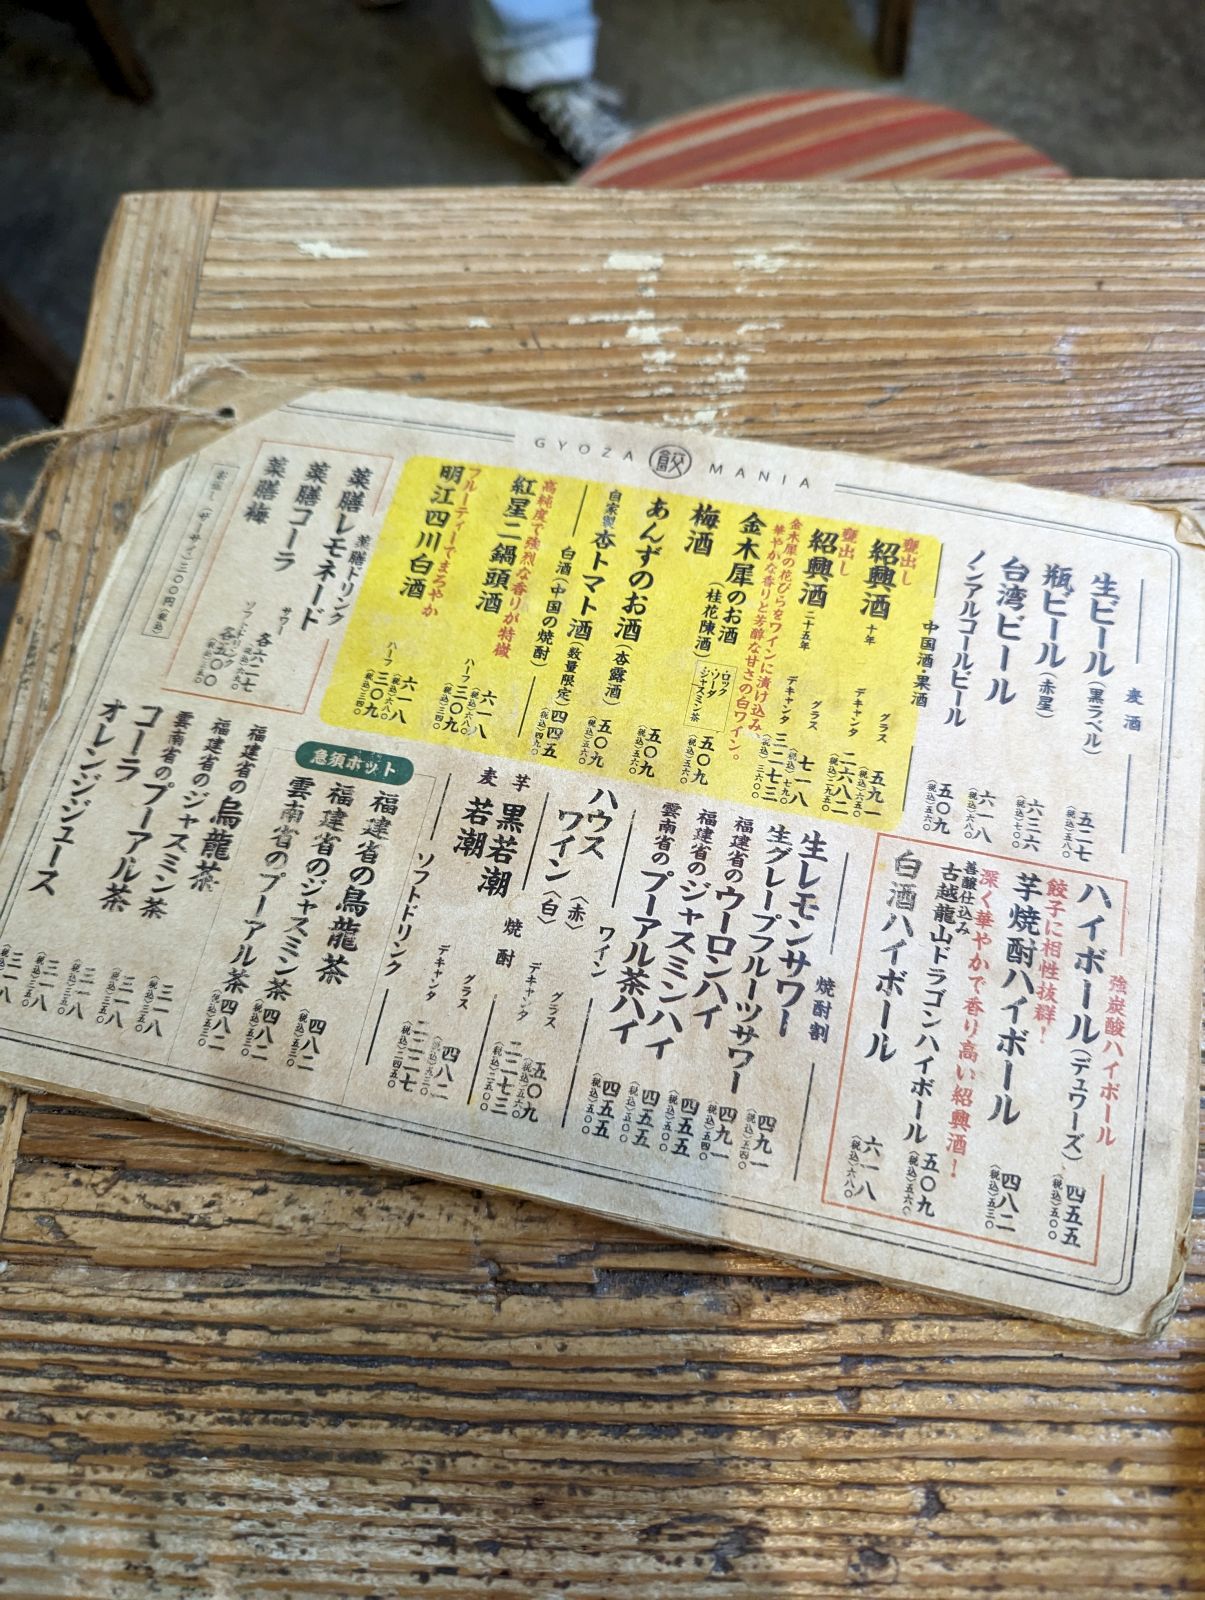 GYOZA 餃 MANIA
麦酒
生ビール(黒ラベル) 五二七 (税込)五八〇
瓶ビール(赤星) 六三六 (税込)七〇〇
台湾ビール 六一八 (税込)六八〇
ノンアルコールビール 五〇九 (税込)五六〇
中国酒・果酒
甕出し
紹興酒 十年
グラス 五九一 (税込)六五〇
デキャンタ 二六八二 (税込)二九五〇
甕出し
紹興酒 二十五年
グラス 七一八 (税込)七九〇
デキャンタ 三二七三 (税込)三六〇〇
金木犀の花びらをワインに漬け込み、
華やかな香りと芳醇な甘さの白ワイン。
金木犀のお酒(桂花陳酒) 五〇九 (税込)五六〇
・ロック
・ソーダ
・ジャスミン茶
梅酒
あんずのお酒(杏露酒) 五〇九 (税込)五六〇
自家製杏トマト酒(数量限定) 五〇九 (税込)五六〇
四四五 (税込)四九〇
白酒(中国の焼酎)
高純度で強烈な香りが特徴
紅星二鍋頭酒 六一八 (税込)六八〇
ハーフ 三〇九 (税込)三四〇
フルーティーでまろやか
明江四川白酒 六一八 (税込)六八〇
ハーフ 三〇九 (税込)三四〇
薬膳ドリンク
薬膳レモネード
薬膳コーラ
薬膳梅
サワー 各六二七 (税込)六九〇
ソフトドリンク 各五〇〇
(ザーサイ)三〇〇円(税込)
強炭酸ハイボール
ハイボール(デュワーズ) 四五五 (税込)五〇〇
餃子に相性抜群!
芋焼酎ハイボール 四八二 (税込)五三〇
深く華やかで香り高い紹興酒!
善醸仕込み
古越龍山ドラゴンハイボール 五〇九 (税込)五六〇
白酒ハイボール 六一八 (税込)六八〇
焼酎割
生レモンサワー 四九一 (税込)五四〇
生グレープフルーツサワー 四九一 (税込)五四〇
福建省のウーロンハイ 四五五 (税込)五〇〇
福建省のジャスミンハイ 四五五 (税込)五〇〇
雲南省のプーアル茶ハイ 四五五 (税込)五〇〇
ワイン
ハウスワイン〈赤〉〈白〉
グラス 五〇九 (税込)五六〇
デキャンタ 二二七三 (税込)二五〇〇
焼酎
芋 黒若潮
麦 若潮
グラス 四八二 (税込)五三〇
デキャンタ 二二二七 (税込)二四五〇
ソフトドリンク
急須ホット
福建省の烏龍茶 四八二 (税込)五三〇
福建省のジャスミン茶 四八二 (税込)五三〇
雲南省のプーアル茶 四八二 (税込)五三〇
福建省の烏龍茶 三一八 (税込)三五〇
福建省のジャスミン茶 三一八 (税込)三五〇
雲南省のプーアル茶 三一八 (税込)三五〇
コーラ 三一八 (税込)三五〇
オレンジジュース 三一八 (税込)